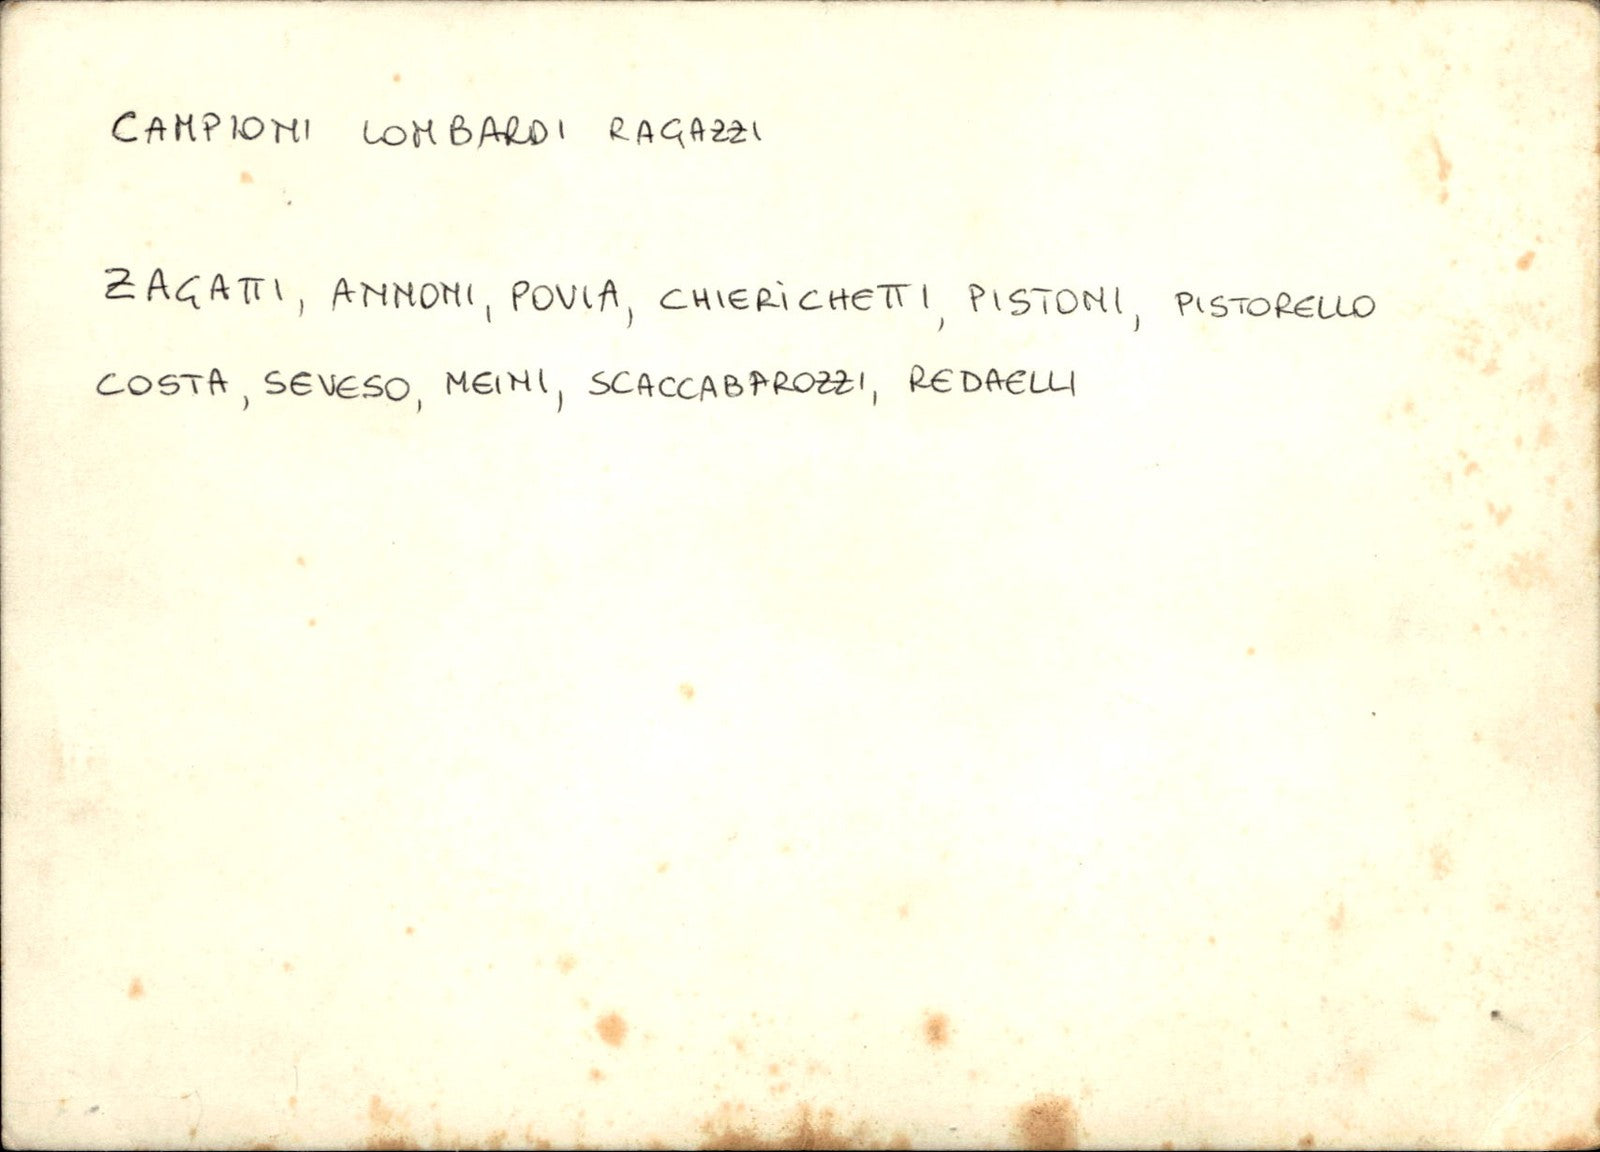 CAMPIONI LOMBARDI RAGAZZI
ZAGATTI, ANNONI, POVIA, CHIERICHETTI, PISTONI, PISTORELLO
COSTA, SEVESO, MEINI, SCACCABAROZZI, REDAELLI